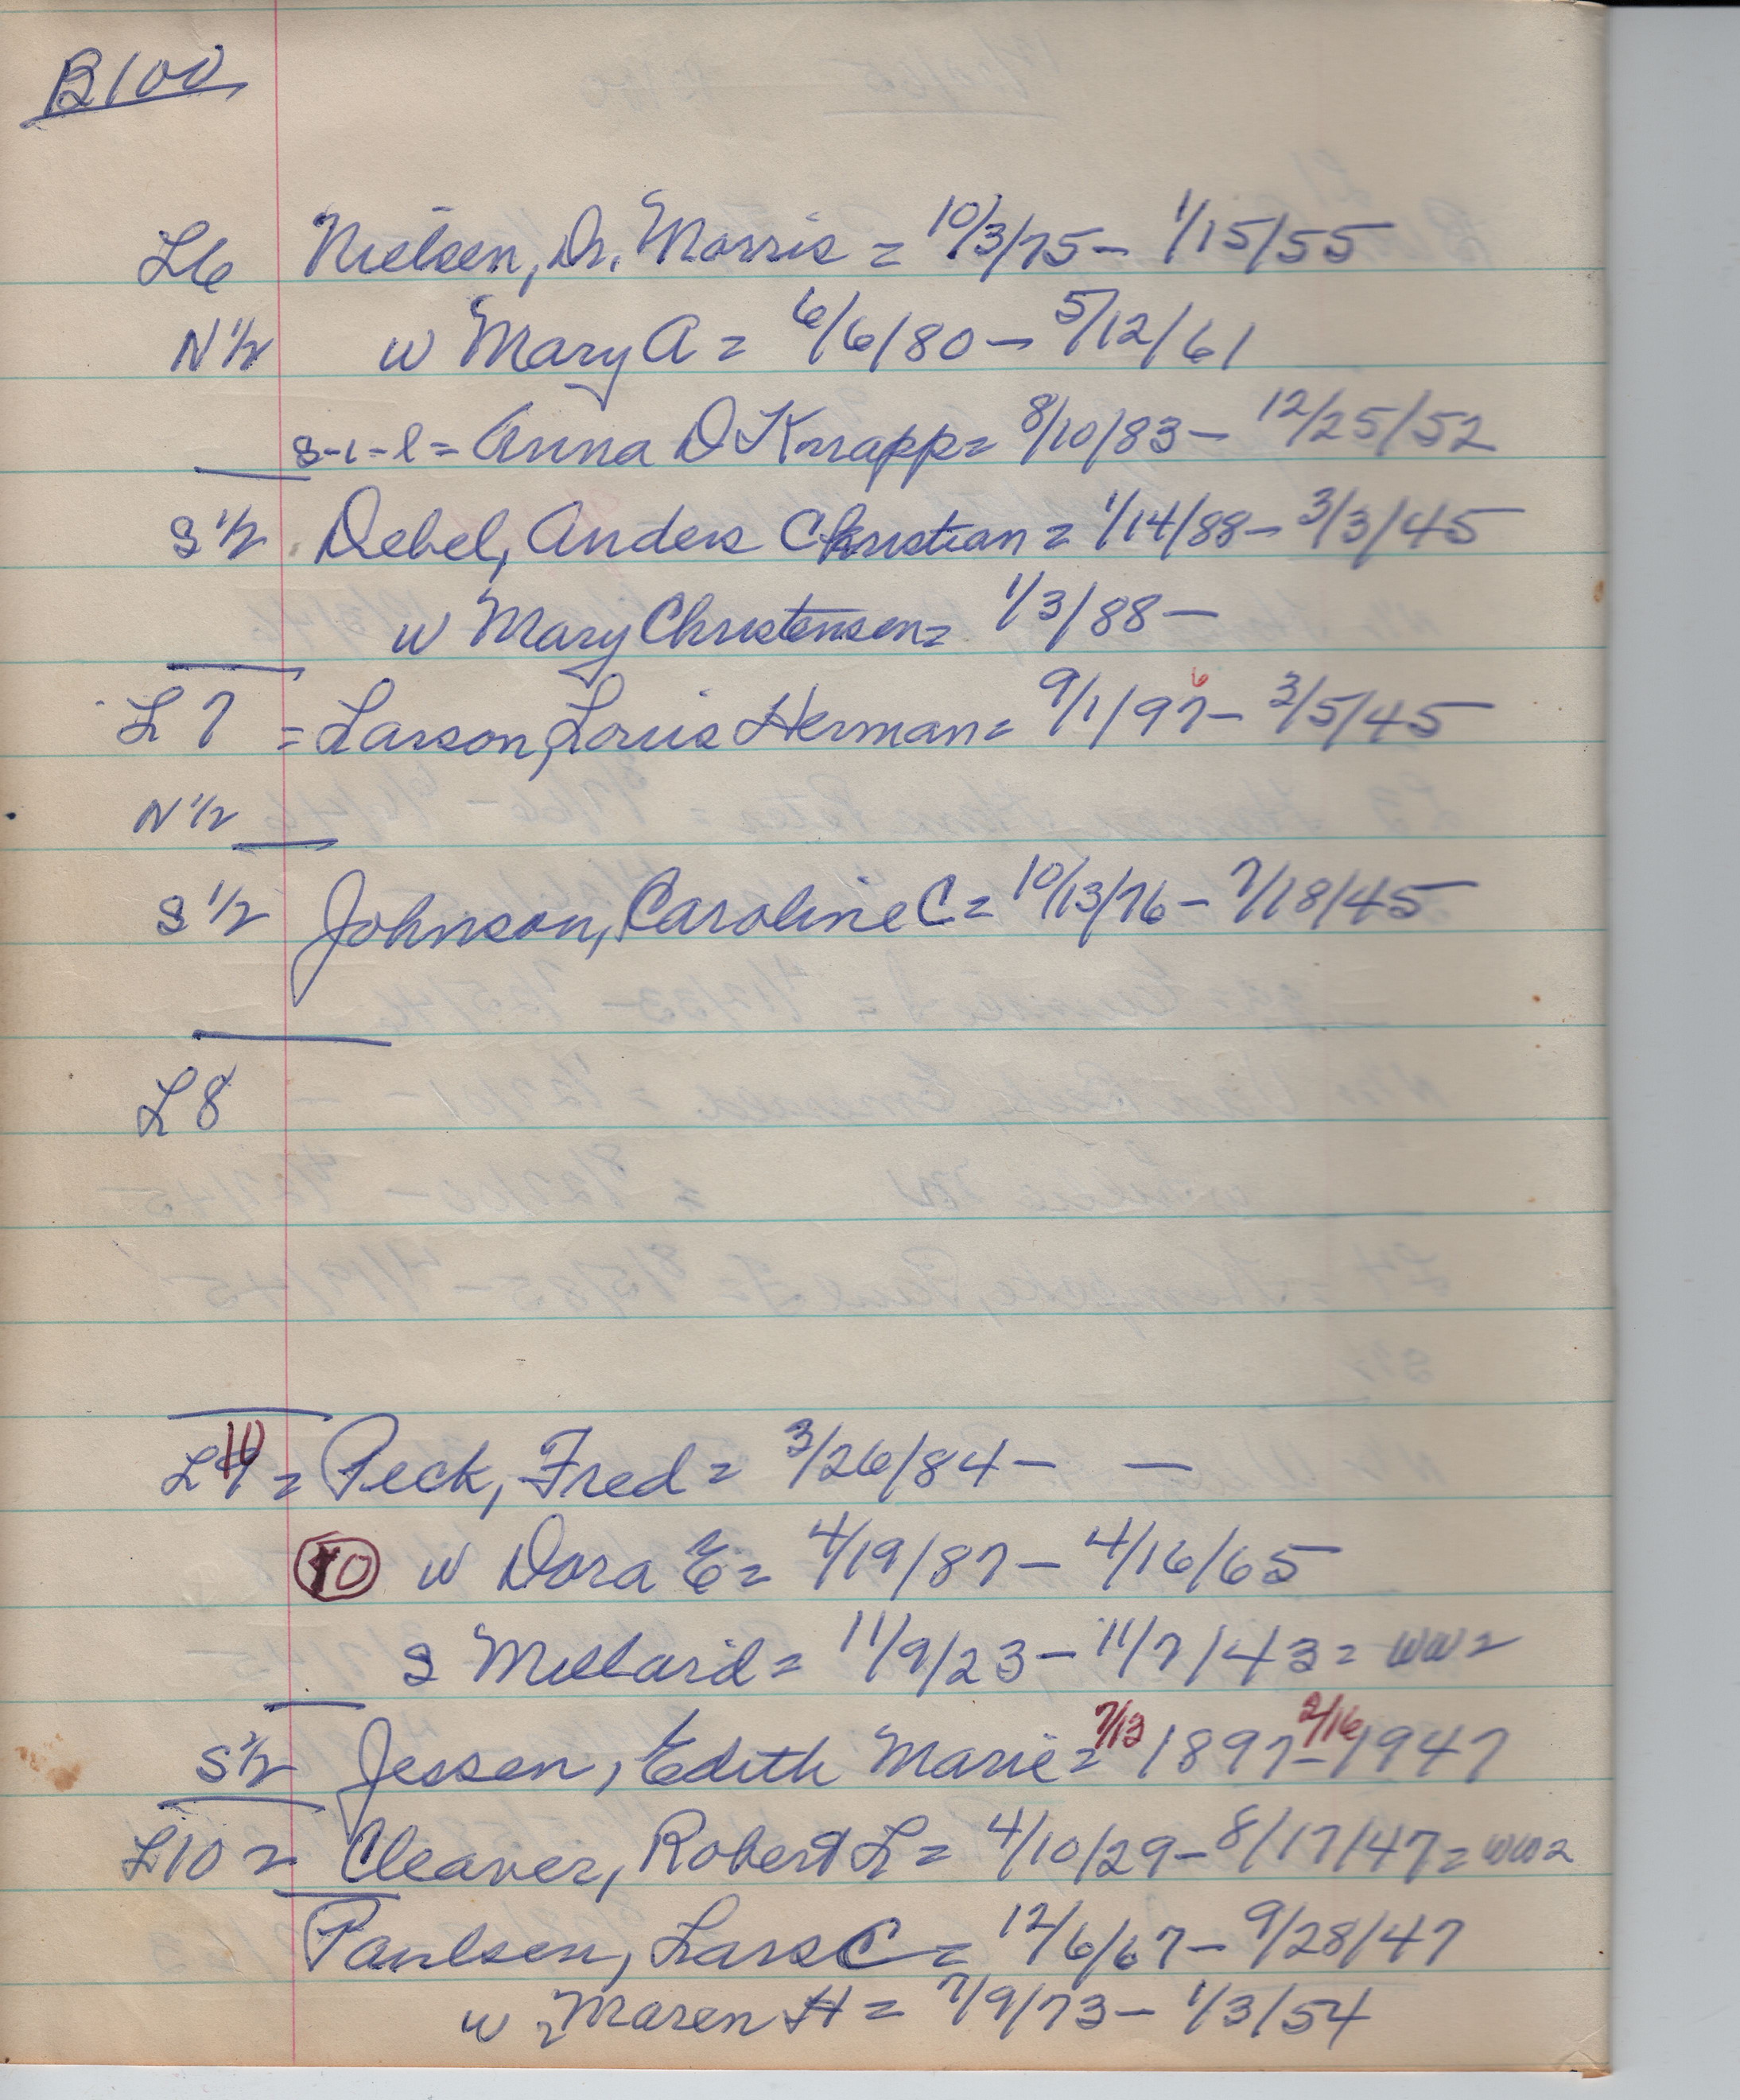 B100
L6 Nielsen, Dr. Morris = 10/3/75 - 1/15/55
N 1/2 w Mary A = 6/6/80 - 5/12/61
s-i-l = Anna D Knapp = 8/10/83 - 12/25/52
S 1/2 Debel, Anders Christian = 1/14/88 - 3/3/45
w Mary Christensen = 1/3/88 -
6
L7 = Larson, Louis Herman = 9/1/97 - 3/5/45
N 1/2
S 1/2 Johnson, Caroline C = 10/13/76 - 7/18/45
L8
10
L9 = Peck, Fred = 3/26/84 - -
10 w Dora E = 4/19/87 - 4/16/65
S Millard = 11/9/23 - 11/7/43 = WW2
7/13 2/16
S 1/2 Jessen, Edith Marie = 1897 - 1947
L10 = Cleaver, Robert L = 4/10/29 - 8/17/47 = WW2
Paulsen, Lars C = 12/6/67 - 9/28/47
w Maren H = 7/9/73 - 1/3/54